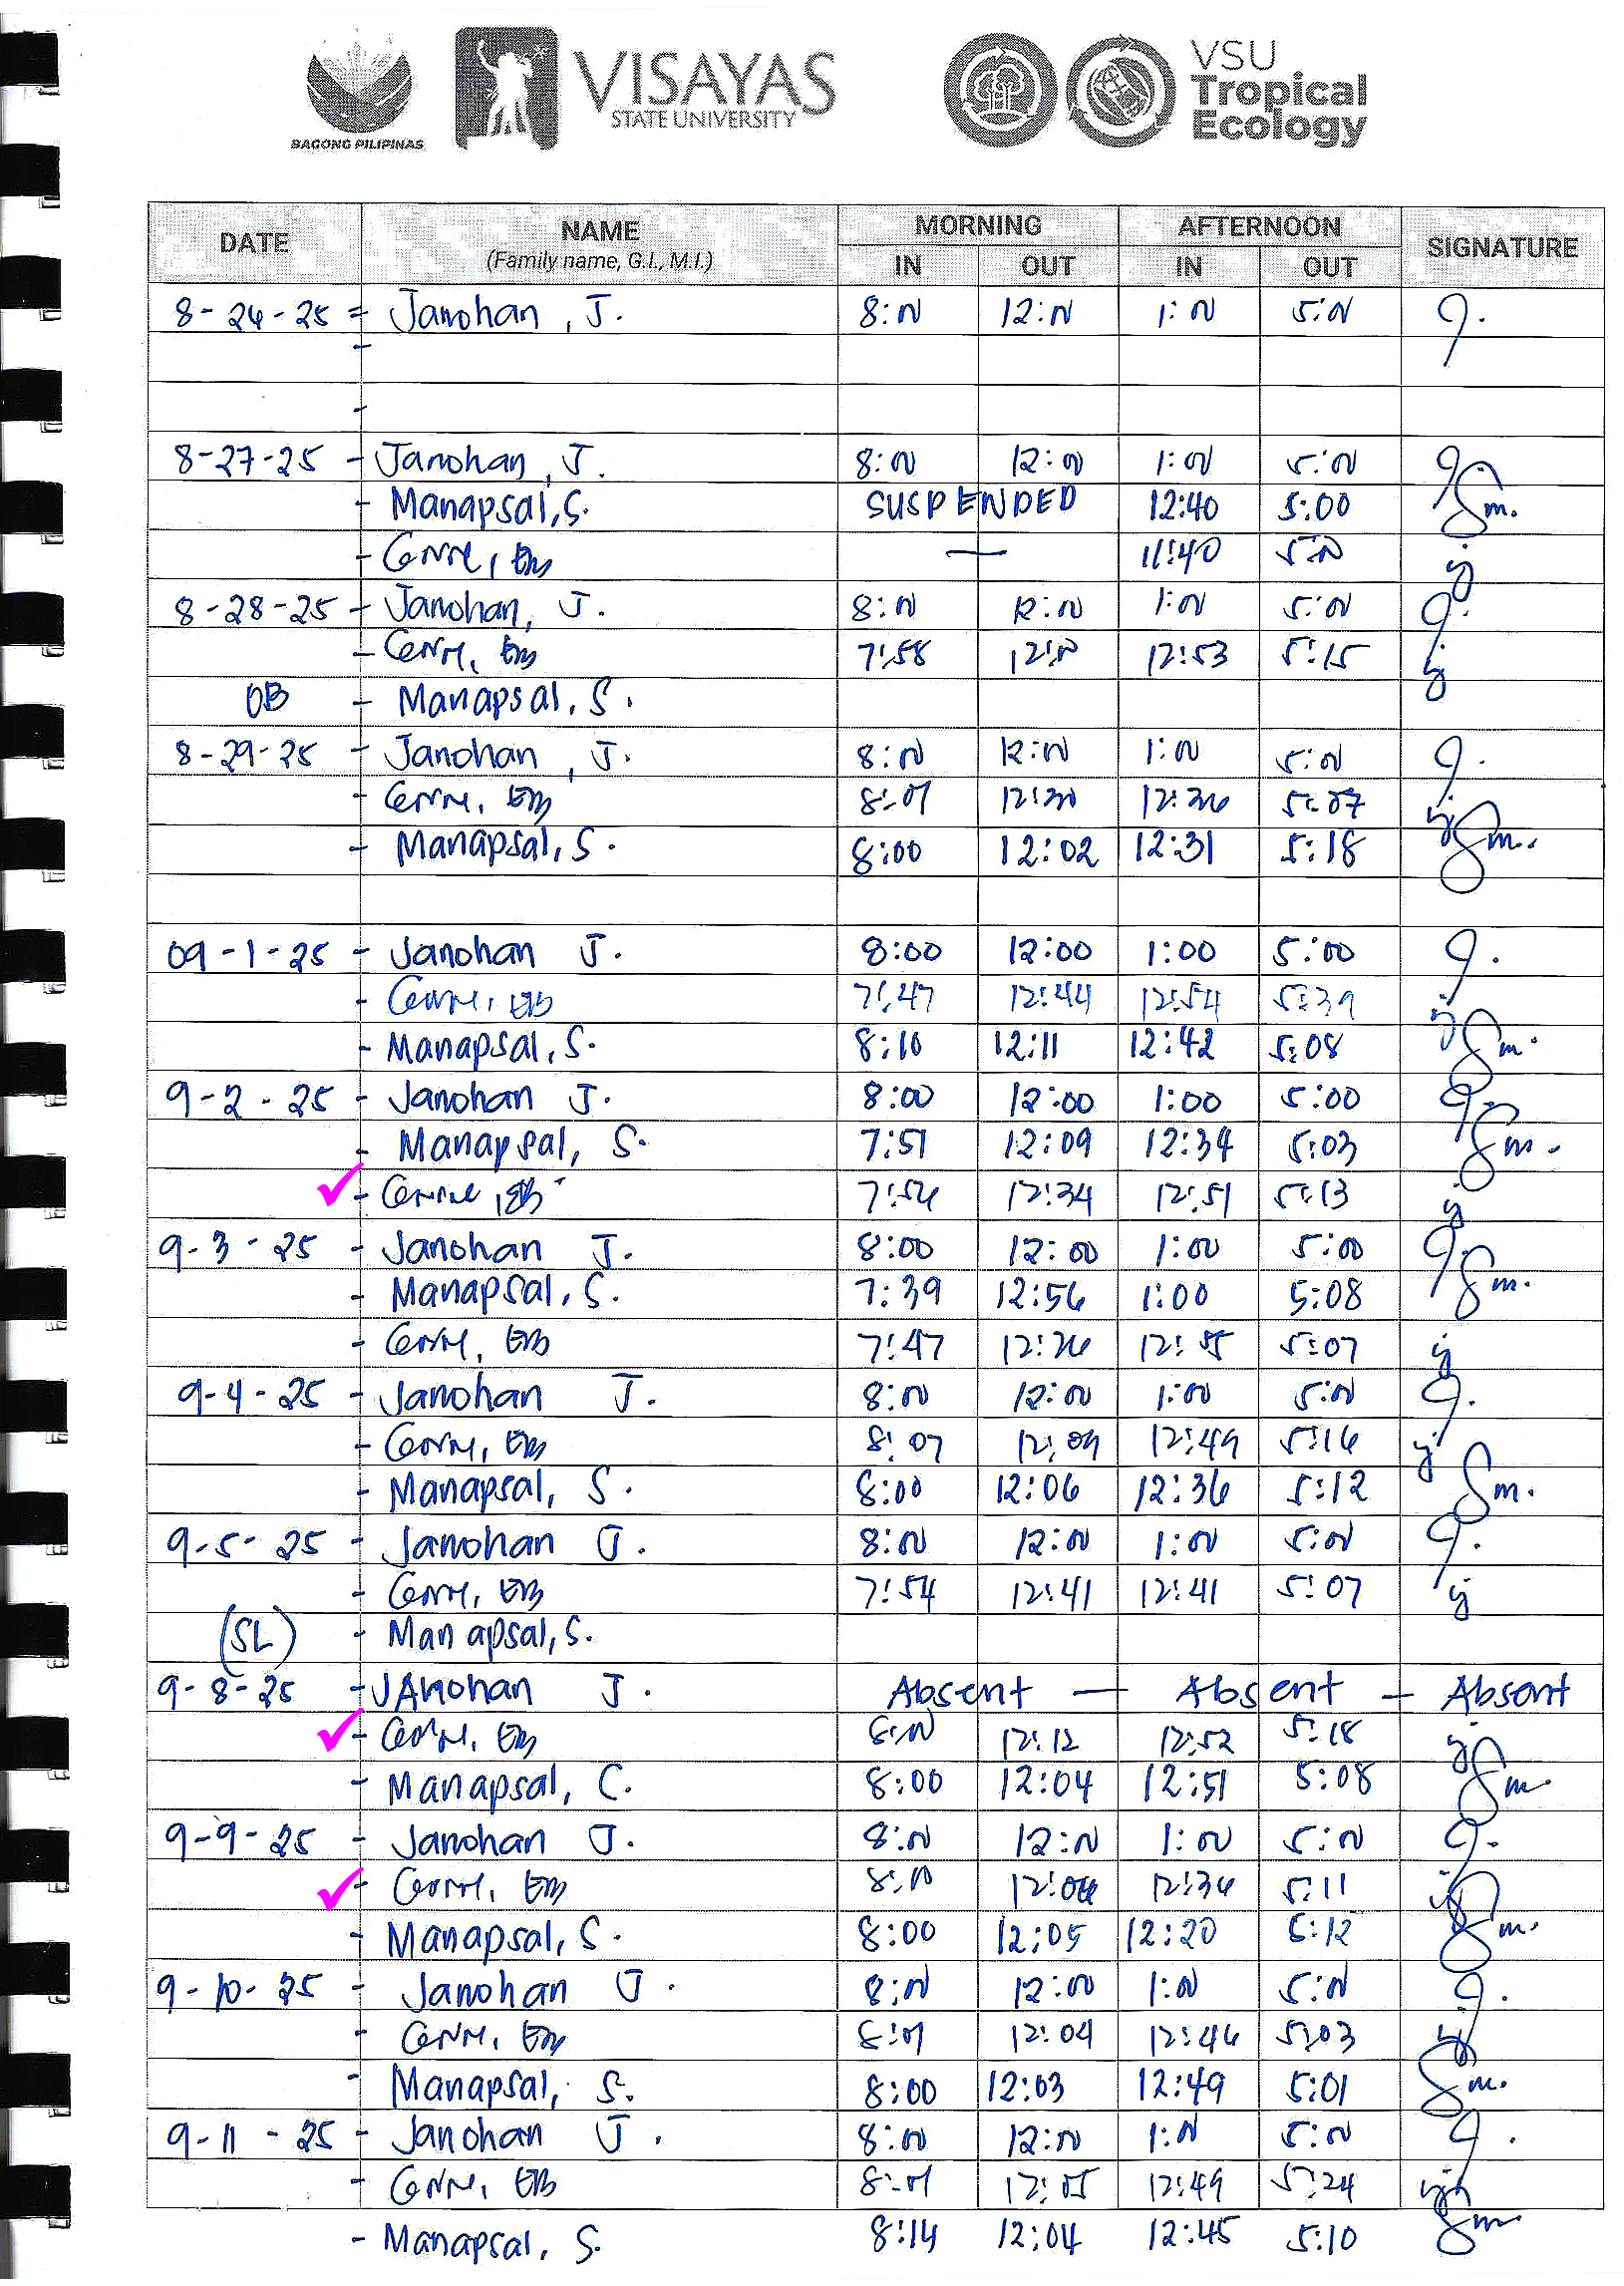 BAGONG PILIPINAS
VISAYAS
STATE UNIVERSITY
VSU
Tropical
Ecology
DATE NAME (Family name, G.I., M.I.) MORNING IN OUT AFTERNOON IN OUT SIGNATURE
8-26-25 - Janohan, J. 8:00 12:00 1:00 5:00
-
-
8-27-25 - Janohan, J. 8:00 12:00 1:00 5:00
- Manapsal, S. SUSPENDED 12:40 5:00
- — 11:40 5:00
8-28-25 - Janohan, J. 8:00 12:00 1:00 5:00
- 7:58 12:00 12:53 5:15
OB - Manapsal, S.
8-29-25 - Janohan, J. 8:00 12:00 1:00 5:00
- 8:01 12:30 12:36 5:07
- Manapsal, S. 8:00 12:02 12:31 5:18
09-1-25 - Janohan J. 8:00 12:00 1:00 5:00
- 7:47 12:44 12:54 5:39
- Manapsal, S. 8:10 12:11 12:42 5:08
9-2-25 - Janohan J. 8:00 12:00 1:00 5:00
- Manapsal, S. 7:51 12:09 12:34 5:03
- 7:56 12:34 12:51 5:13
9-3-25 - Janohan J. 8:00 12:00 1:00 5:00
- Manapsal, S. 7:39 12:56 1:00 5:08
- 7:47 12:26 12:55 5:07
9-4-25 - Janohan J. 8:00 12:00 1:00 5:00
- 8:07 12:09 12:49 5:16
- Manapsal, S. 8:00 12:06 12:36 5:12
9-5-25 - Janohan J. 8:00 12:00 1:00 5:00
- 7:54 12:41 12:41 5:07
(SL) - Manapsal, S.
9-8-25 - JAnohan J. Absent — Absent — Absent
- 8:00 12:12 12:52 5:18
- Manapsal, C. 8:00 12:04 12:51 5:08
9-9-25 - Janohan J. 8:00 12:00 1:00 5:00
- 8:00 12:06 12:36 5:11
- Manapsal, S. 8:00 12:05 12:20 5:12
9-10-25 - Janohan J. 8:00 12:00 1:00 5:00
- 8:01 12:04 12:46 5:03
- Manapsal, S. 8:00 12:03 12:49 5:01
9-11-25 - Janohan J. 8:00 12:00 1:00 5:00
- 8:01 12:05 12:49 5:24
- Manapsal, S. 8:14 12:04 12:45 5:10